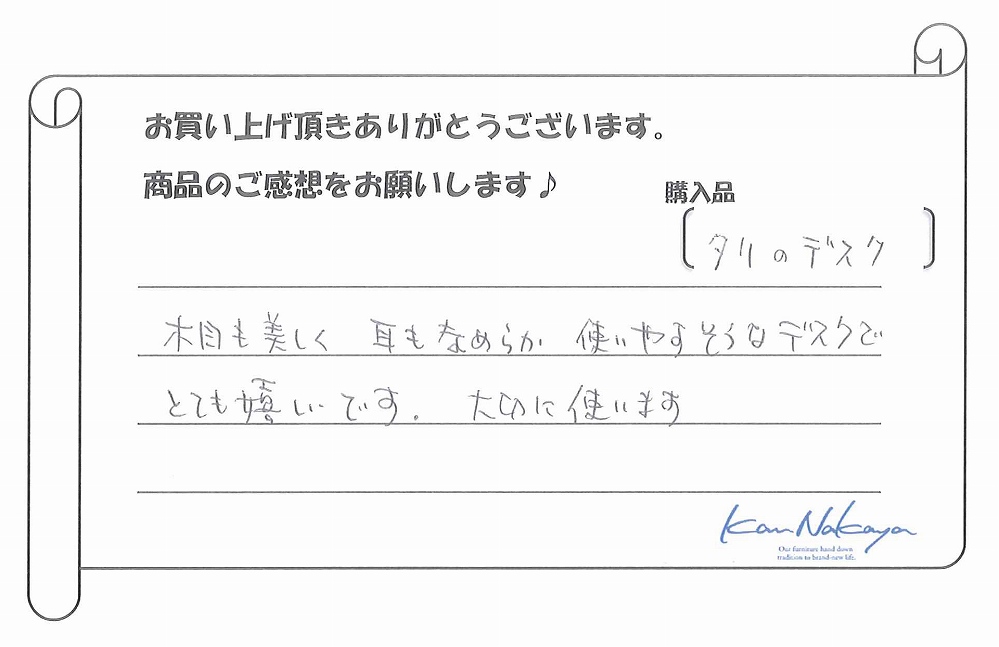 お買い上げ頂きありがとうございます。
商品のご感想をお願いします♪
購入品
タリのデスク
木目も美しく 耳もなめらか 使いやすそうなデスクで
とても嬉しいです. 大切に使います
Kan Nakaya
Our furniture hand down
tradition to brand-new life.